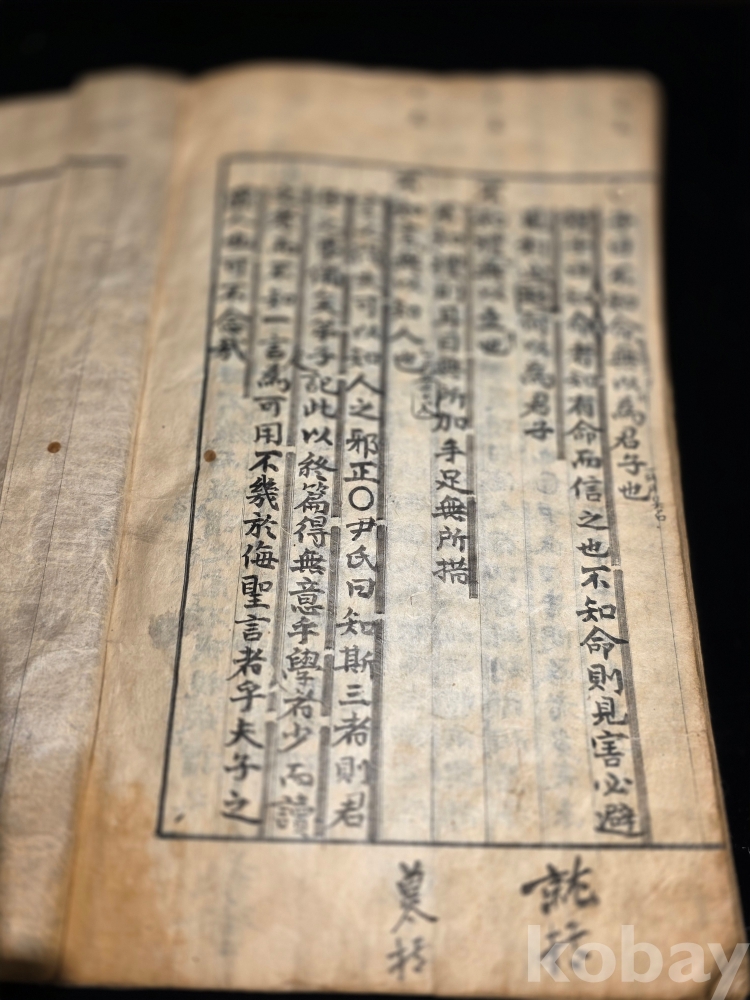 子曰不知命無以為君子也
程子曰知命者知有命而信之也不知命則見害必避
見利必趨何以為君子
不知禮無以立也
不知禮則耳目無所加手足無所措
不知言無以知人也
言之得失可以知人之邪正〇尹氏曰知斯三者則君
子之事備矣弟子記此以終篇得無意乎學者少而讀
之老而不知一言為可用不幾於侮聖言者乎夫子之
罪人也可不念哉
kobay